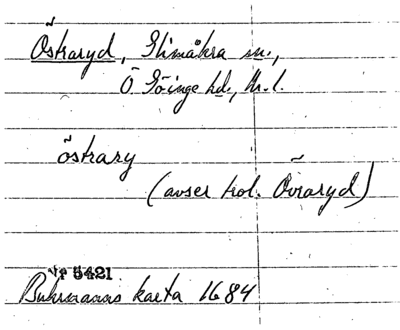 Östraryd, Glimåkra sn.,
Ö Göinge hd., Kr. l.
östrary
(avser trol. Övraryd)
Nr 5421
Buhrmanns karta 1684